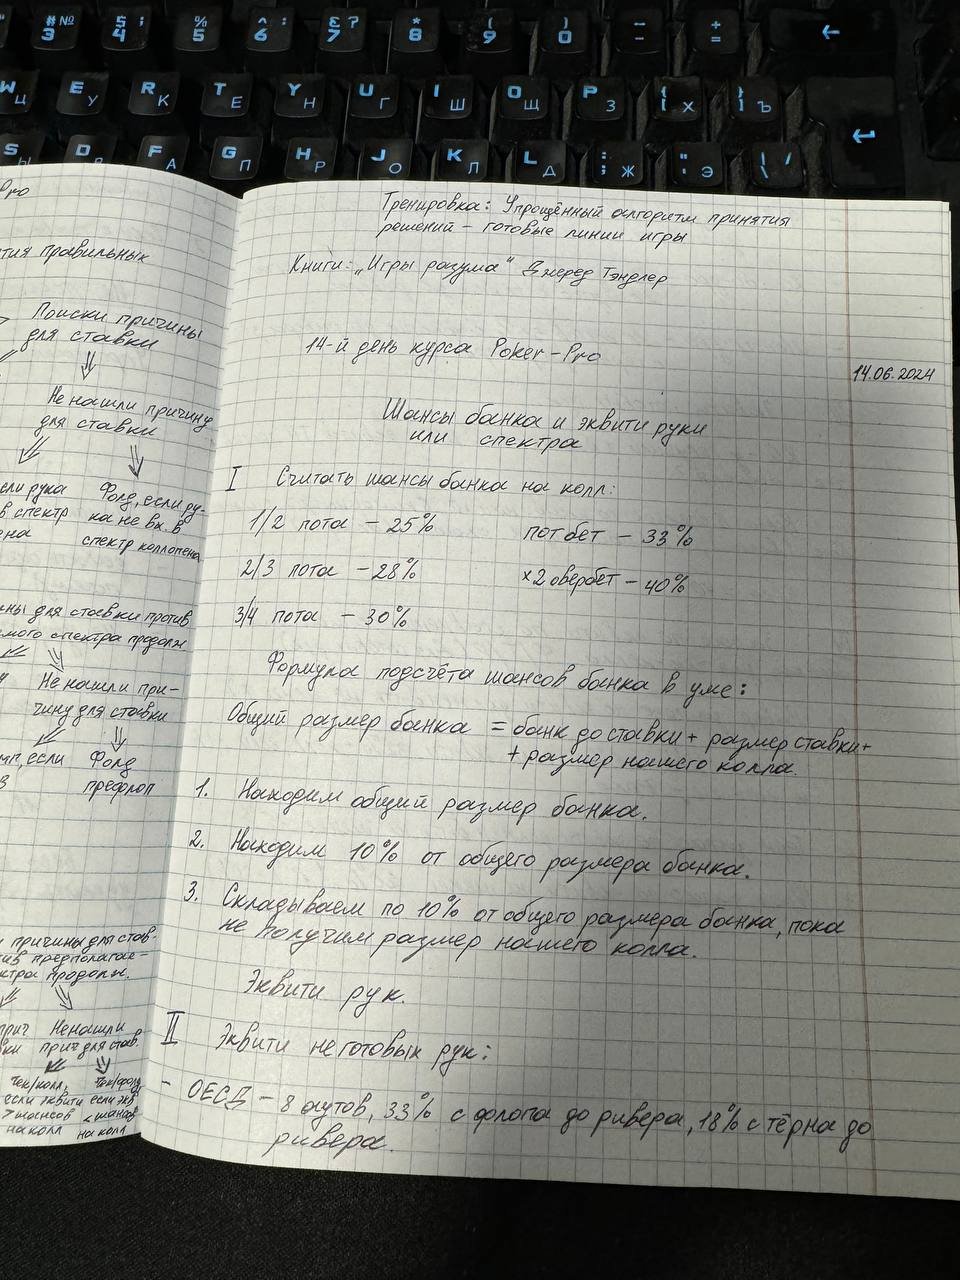 # № 3
§ ; 4
% 5
^ : 6
£ ? 7
* 8
( 9
) 0
– –
+ =
←
W Ц
E У
R К
T Е
Y Н
U Г
I Ш
O Щ
P З
{ [ Х
} ] Ъ
S Ы
D В
F А
G П
H Р
J О
K Л
L Д
: ; Ж
" ' Э
| \ /
Pro
тия правильных
Поиски причины
для ставки
Не нашли причину
для ставки
если рука
в спектр
Фолд, если ру-
ка не вх. в
спектр коллопена
ны для ставки против
мого спектра продолж
Не нашли при-
чину для ставки
если
Фолд
префлоп
причины для став-
ив предполагае-
ктра продолж.
прич
вки
Не нашли
прич для став.
Чек/колл,
если эквити
> шансов
на колл
Чек/фолд
если экв
< шансов
на колл
Тренировка: Упрощённый алгоритм принятия
решений – готовые линии игры
Книги: „Игры разума“ Джеред Тэндлер
14-й день курса Poker-Pro
14.06.2024
Шансы банка и эквити руки
или спектра
I Считать шансы банка на колл:
1/2 пота – 25% пот бет – 33%
2/3 пота – 28% ×2 овербет – 40%
3/4 пота – 30%
Формула подсчёта шансов банка в уме:
Общий размер банка = банк до ставки + размер ставки +
+ размер нашего колла.
1. Находим общий размер банка.
2. Находим 10% от общего размера банка.
3. Складываем по 10% от общего размера банка, пока
не получим размер нашего колла.
Эквити рук.
II Эквити не готовых рук:
– ОЕСД – 8 аутов, 33% с флопа до ривера, 18% с тёрна до
ривера.